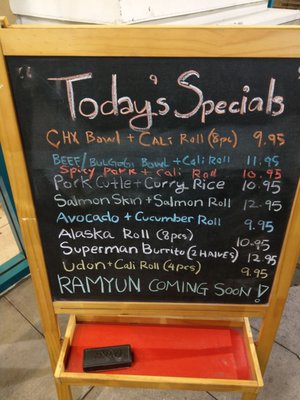 Today's Specials
CHX Bowl + Cali Roll (8pc) 9.95
BEEF/BULGOGI Bowl + Cali Roll 11.95
Spicy Pork + Cali Roll 10.95
Pork Cutle + Curry Rice 10.95
Salmon Skin + Salmon Roll 12.95
Avocado + Cucumber Roll 9.95
Alaska Roll (8pcs) 10.95
Superman Burrito (2 HALVES) 12.95
Udon + Cali Roll (4pcs) 9.95
RAMYUN COMING SOON!